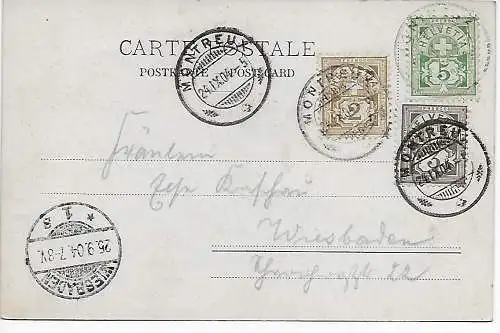 CARTE POSTALE
POSTKARTE POSTCARD
MONTREUX
24.IX.04.-5
MONTREUX
2
HELVETIA
5
MONTREUX
24.IX.04
Fräulein
Wiesbaden
22
WIESBADEN
26.9.04.7-8V.
* 1 s